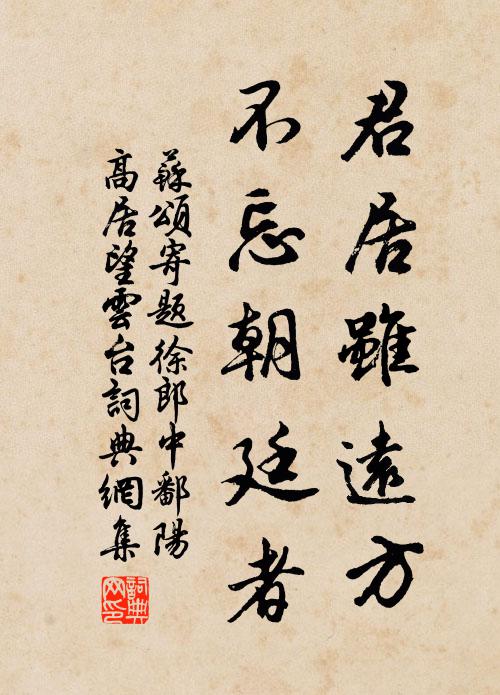 君居雖遠方
不忘朝廷者
蘇頌寄題徐郎中鄱陽
高居望雲台詞典網集
詞典網印